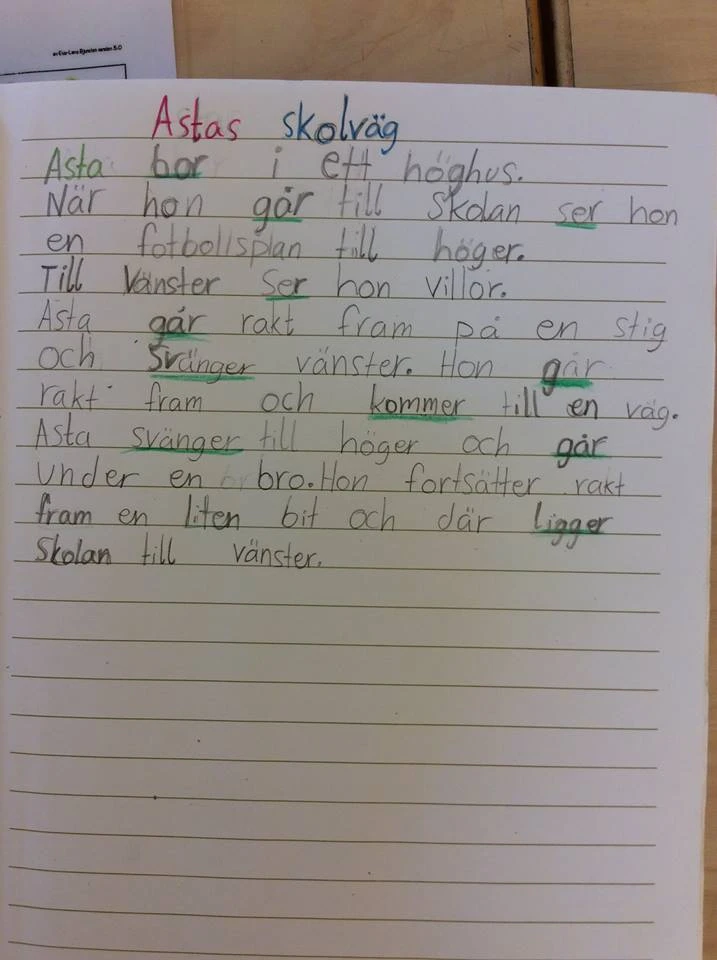 Astas skolväg
Asta bor i ett höghus.
När hon går till Skolan ser hon
en fotbollsplan till höger.
Till Vänster ser hon villor.
Asta går rakt fram på en stig
och Svänger vänster. Hon går
rakt fram och kommer till en väg.
Asta svänger till höger och går
under en bro. Hon fortsätter rakt
fram en liten bit och där ligger
Skolan till vänster.